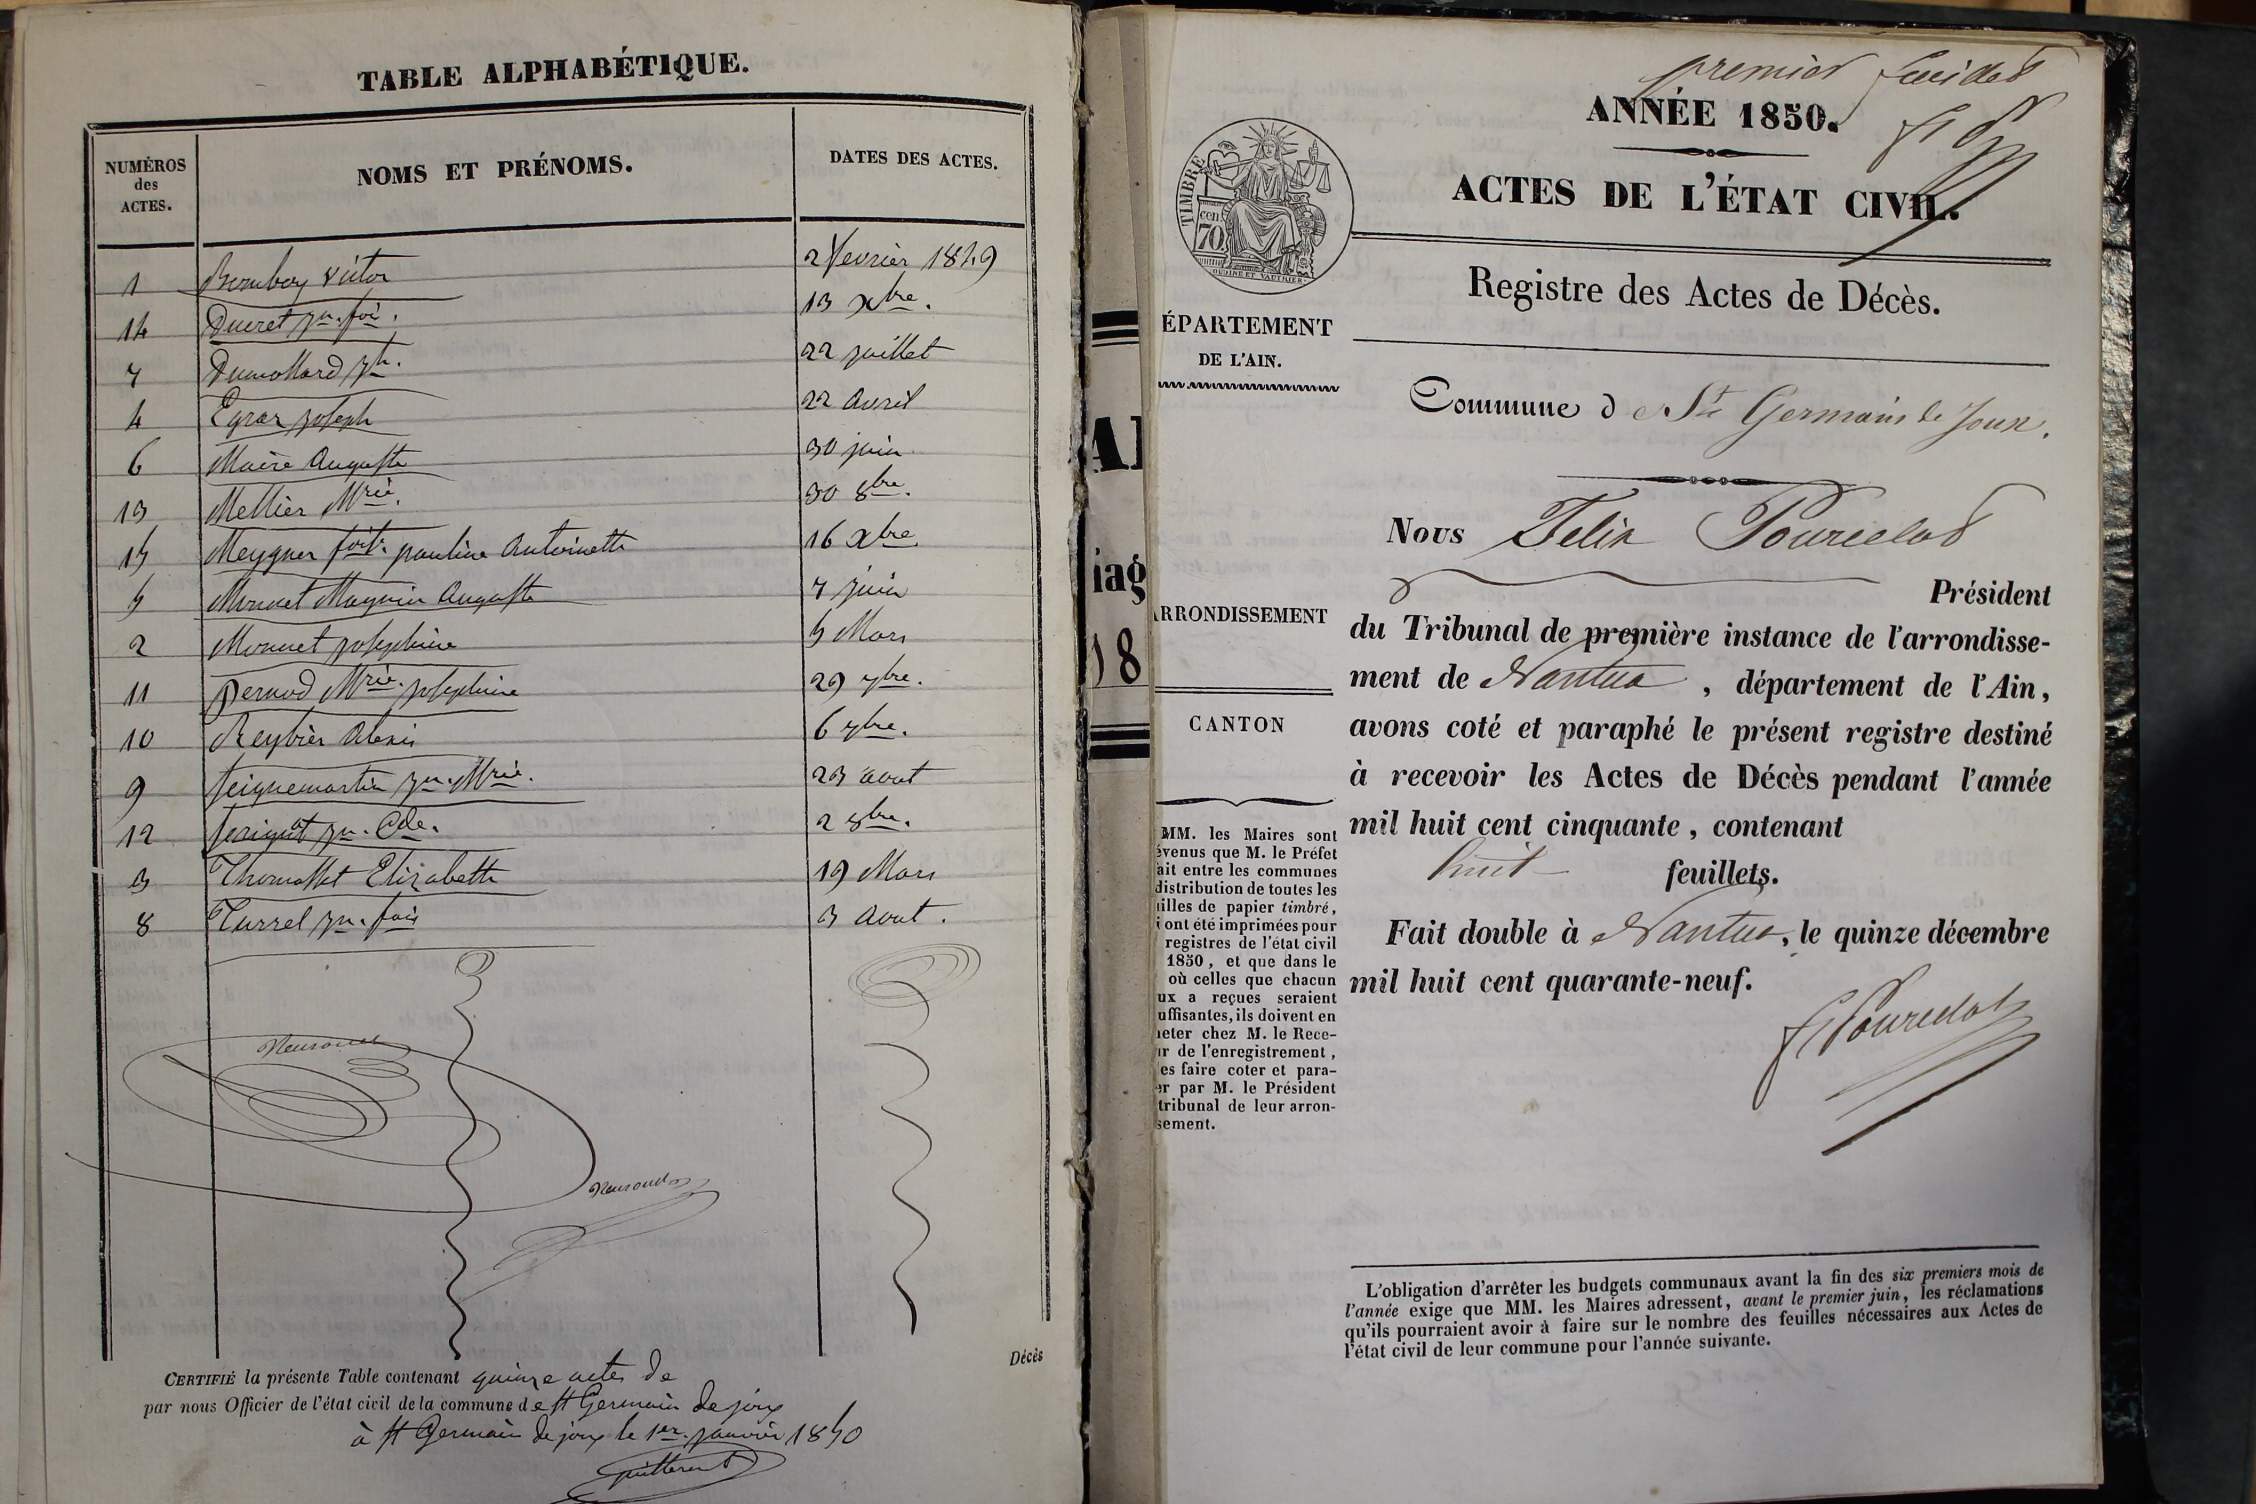 TABLE ALPHABÉTIQUE.
NUMÉROS
des
ACTES.
NOMS ET PRÉNOMS.
DATES DES ACTES.
1 Bomboy Victor 2 fevrier 1849
14 Ducret jn. fois. 13 xbre.
7 Dumollard jh. 22 juillet
4 Egraz joseph 22 avril
6 Maire Auguste 30 juin
13 Mellier Mrie. 30 8bre.
15 Meygner pauline Antoinette 16 xbre
5 Monnet Maynier Auguste 7 juin
2 Monnet josephine 5 Mars
11 Pernod Mrie. josephine 29 7bre.
10 Reybier Alexis 6 7bre.
9 Seignemartin jn. Mrie. 23 aout
12 jn. Cde. 2 8bre.
3 Thomasset Elizabeth 19 Mars
8 Turrel jn. fois 3 Aout.
Décès
CERTIFIÉ la présente Table contenant quinze actes de
par nous Officier de l'état civil de la commune de St Germain de joux
à St Germain de joux le 1er. janvier 1850
premier
ANNÉE 1850.
ACTES DE L'ÉTAT CIVIL.
TIMBRE
cen.
70
OUDINE ET VAUTHIER
Registre des Actes de Décès.
ÉPARTEMENT
DE L'AIN.
Commune d e St Germain de Joux.
Nous Felix Pourcelot
Président
du Tribunal de première instance de l'arrondisse-
ment de Nantua, département de l'Ain,
avons coté et paraphé le présent registre destiné
à recevoir les Actes de Décès pendant l'année
mil huit cent cinquante, contenant
huit feuillets.
Fait double à Nantua, le quinze décembre
mil huit cent quarante-neuf.
F Pourcelot
RRONDISSEMENT
CANTON
MM. les Maires sont
évenus que M. le Préfet
ait entre les communes
distribution de toutes les
uilles de papier timbré,
i ont été imprimées pour
registres de l'état civil
1850, et que dans le
où celles que chacun
ux a reçues seraient
uffisantes, ils doivent en
heter chez M. le Rece-
ur de l'enregistrement,
es faire coter et para-
er par M. le Président
tribunal de leur arron-
sement.
L'obligation d'arrêter les budgets communaux avant la fin des six premiers mois de
l'année exige que MM. les Maires adressent, avant le premier juin, les réclamations
qu'ils pourraient avoir à faire sur le nombre des feuilles nécessaires aux Actes de
l'état civil de leur commune pour l'année suivante.
iag
18